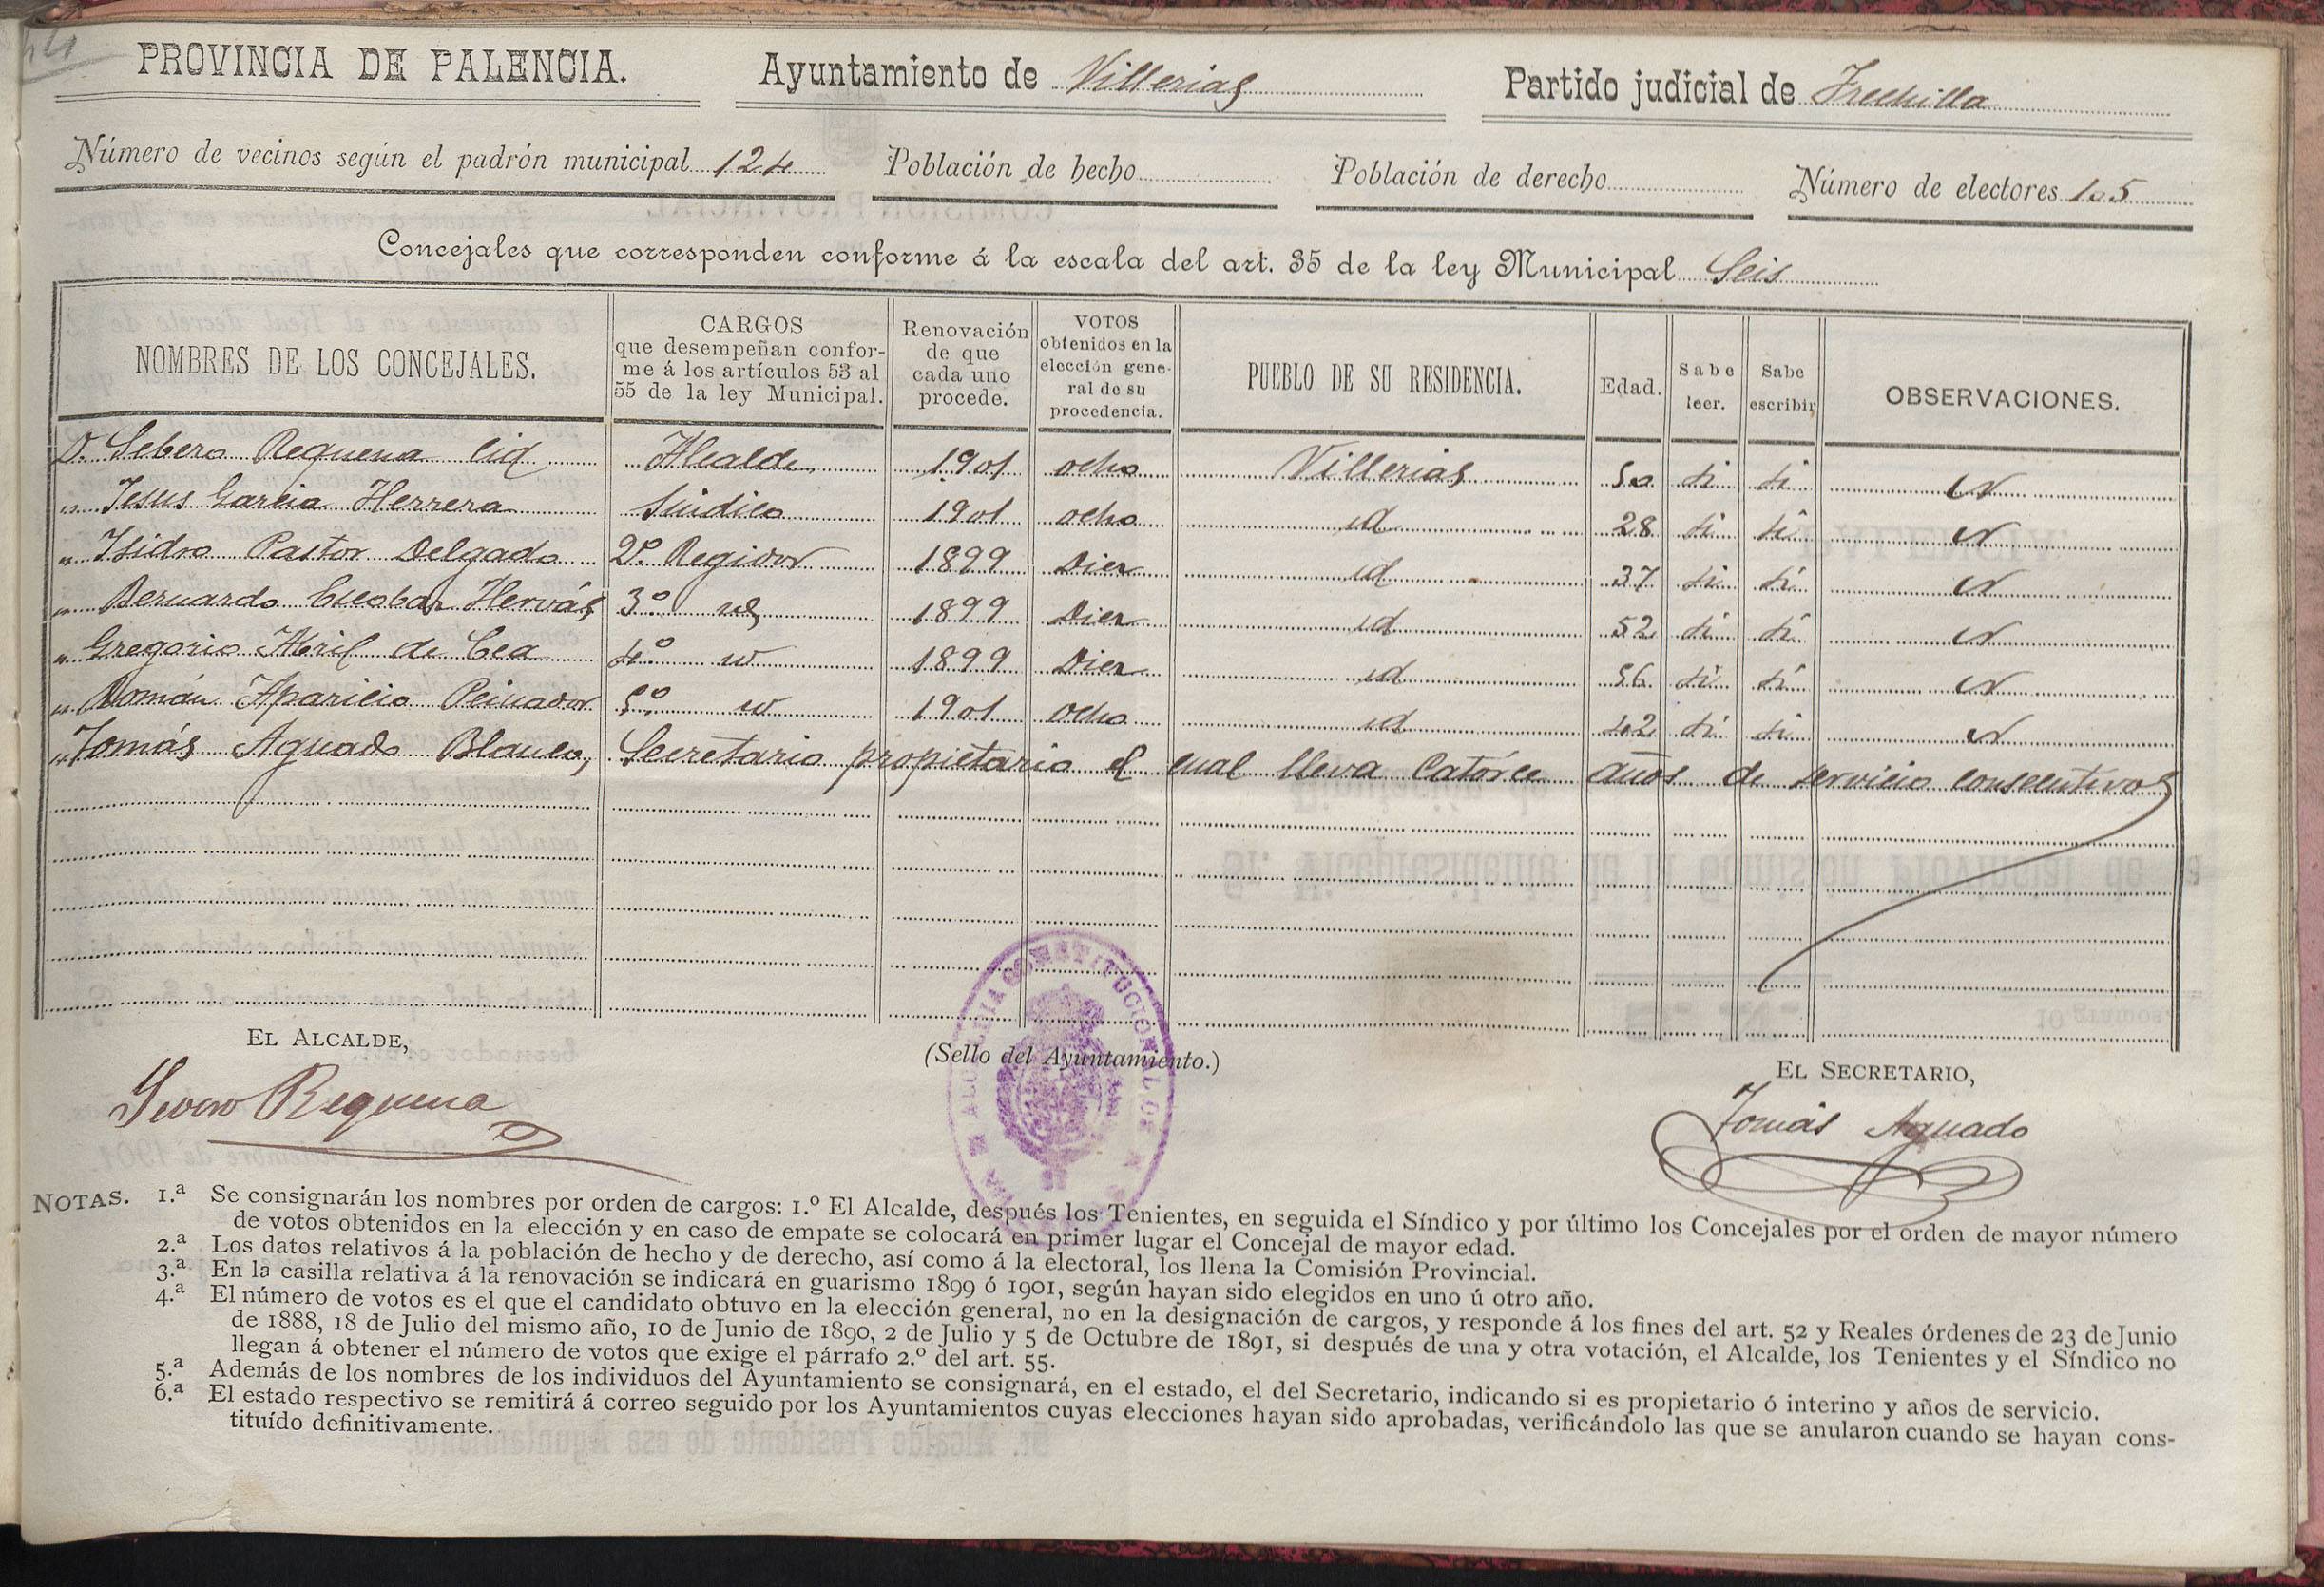 PROVINCIA DE PALENCIA. Ayuntamiento de Villerias Partido judicial de Frechilla
Número de vecinos según el padrón municipal 124 Población de hecho Población de derecho Número de electores 105
Concejales que corresponden conforme á la escala del art. 35 de la ley Municipal Seis
NOMBRES DE LOS CONCEJALES. CARGOS que desempeñan confor-me á los artículos 53 al 55 de la ley Municipal. Renovación de que cada uno procede. VOTOS obtenidos en la elección gene-ral de su procedencia. PUEBLO DE SU RESIDENCIA. Edad. Sabe leer. Sabe escribir OBSERVACIONES.
D. Sebero Requena Cid Alcalde 1901 ocho Villerias 50 si si
" Jesus Garcia Herrera Sindico 1901 ocho id 28 si si
" Isidro Pastor Delgado 2º Regidor 1899 Diez id 37 si si
" Bernardo Escobar Hervás 3º id 1899 Diez id 52 si si
" Gregorio Abril de Cea 4º id 1899 Diez id 56 si si
" Román Aparicio Peinador 5º id 1901 ocho id 42 si si
" Tomás Aguado Blanco, Secretario propietario el cual lleva Catórce años de servicio consecutivos
EL ALCALDE,
(Sello del Ayuntamiento.)
EL SECRETARIO,
Severo Requena
Tomás Aguado
ALCALDIA CONSTITUCIONAL DE
NOTAS. 1.ª Se consignarán los nombres por orden de cargos: 1.º El Alcalde, después los Tenientes, en seguida el Síndico y por último los Concejales por el orden de mayor número
de votos obtenidos en la elección y en caso de empate se colocará en primer lugar el Concejal de mayor edad.
2.ª Los datos relativos á la población de hecho y de derecho, así como á la electoral, los llena la Comisión Provincial.
3.ª En la casilla relativa á la renovación se indicará en guarismo 1899 ó 1901, según hayan sido elegidos en uno ú otro año.
4.ª El número de votos es el que el candidato obtuvo en la elección general, no en la designación de cargos, y responde á los fines del art. 52 y Reales órdenes de 23 de Junio
de 1888, 18 de Julio del mismo año, 10 de Junio de 1890, 2 de Julio y 5 de Octubre de 1891, si después de una y otra votación, el Alcalde, los Tenientes y el Síndico no
llegan á obtener el número de votos que exige el párrafo 2.º del art. 55.
5.ª Además de los nombres de los individuos del Ayuntamiento se consignará, en el estado, el del Secretario, indicando si es propietario ó interino y años de servicio.
6.ª El estado respectivo se remitirá á correo seguido por los Ayuntamientos cuyas elecciones hayan sido aprobadas, verificándolo las que se anularon cuando se hayan cons-
tituído definitivamente.